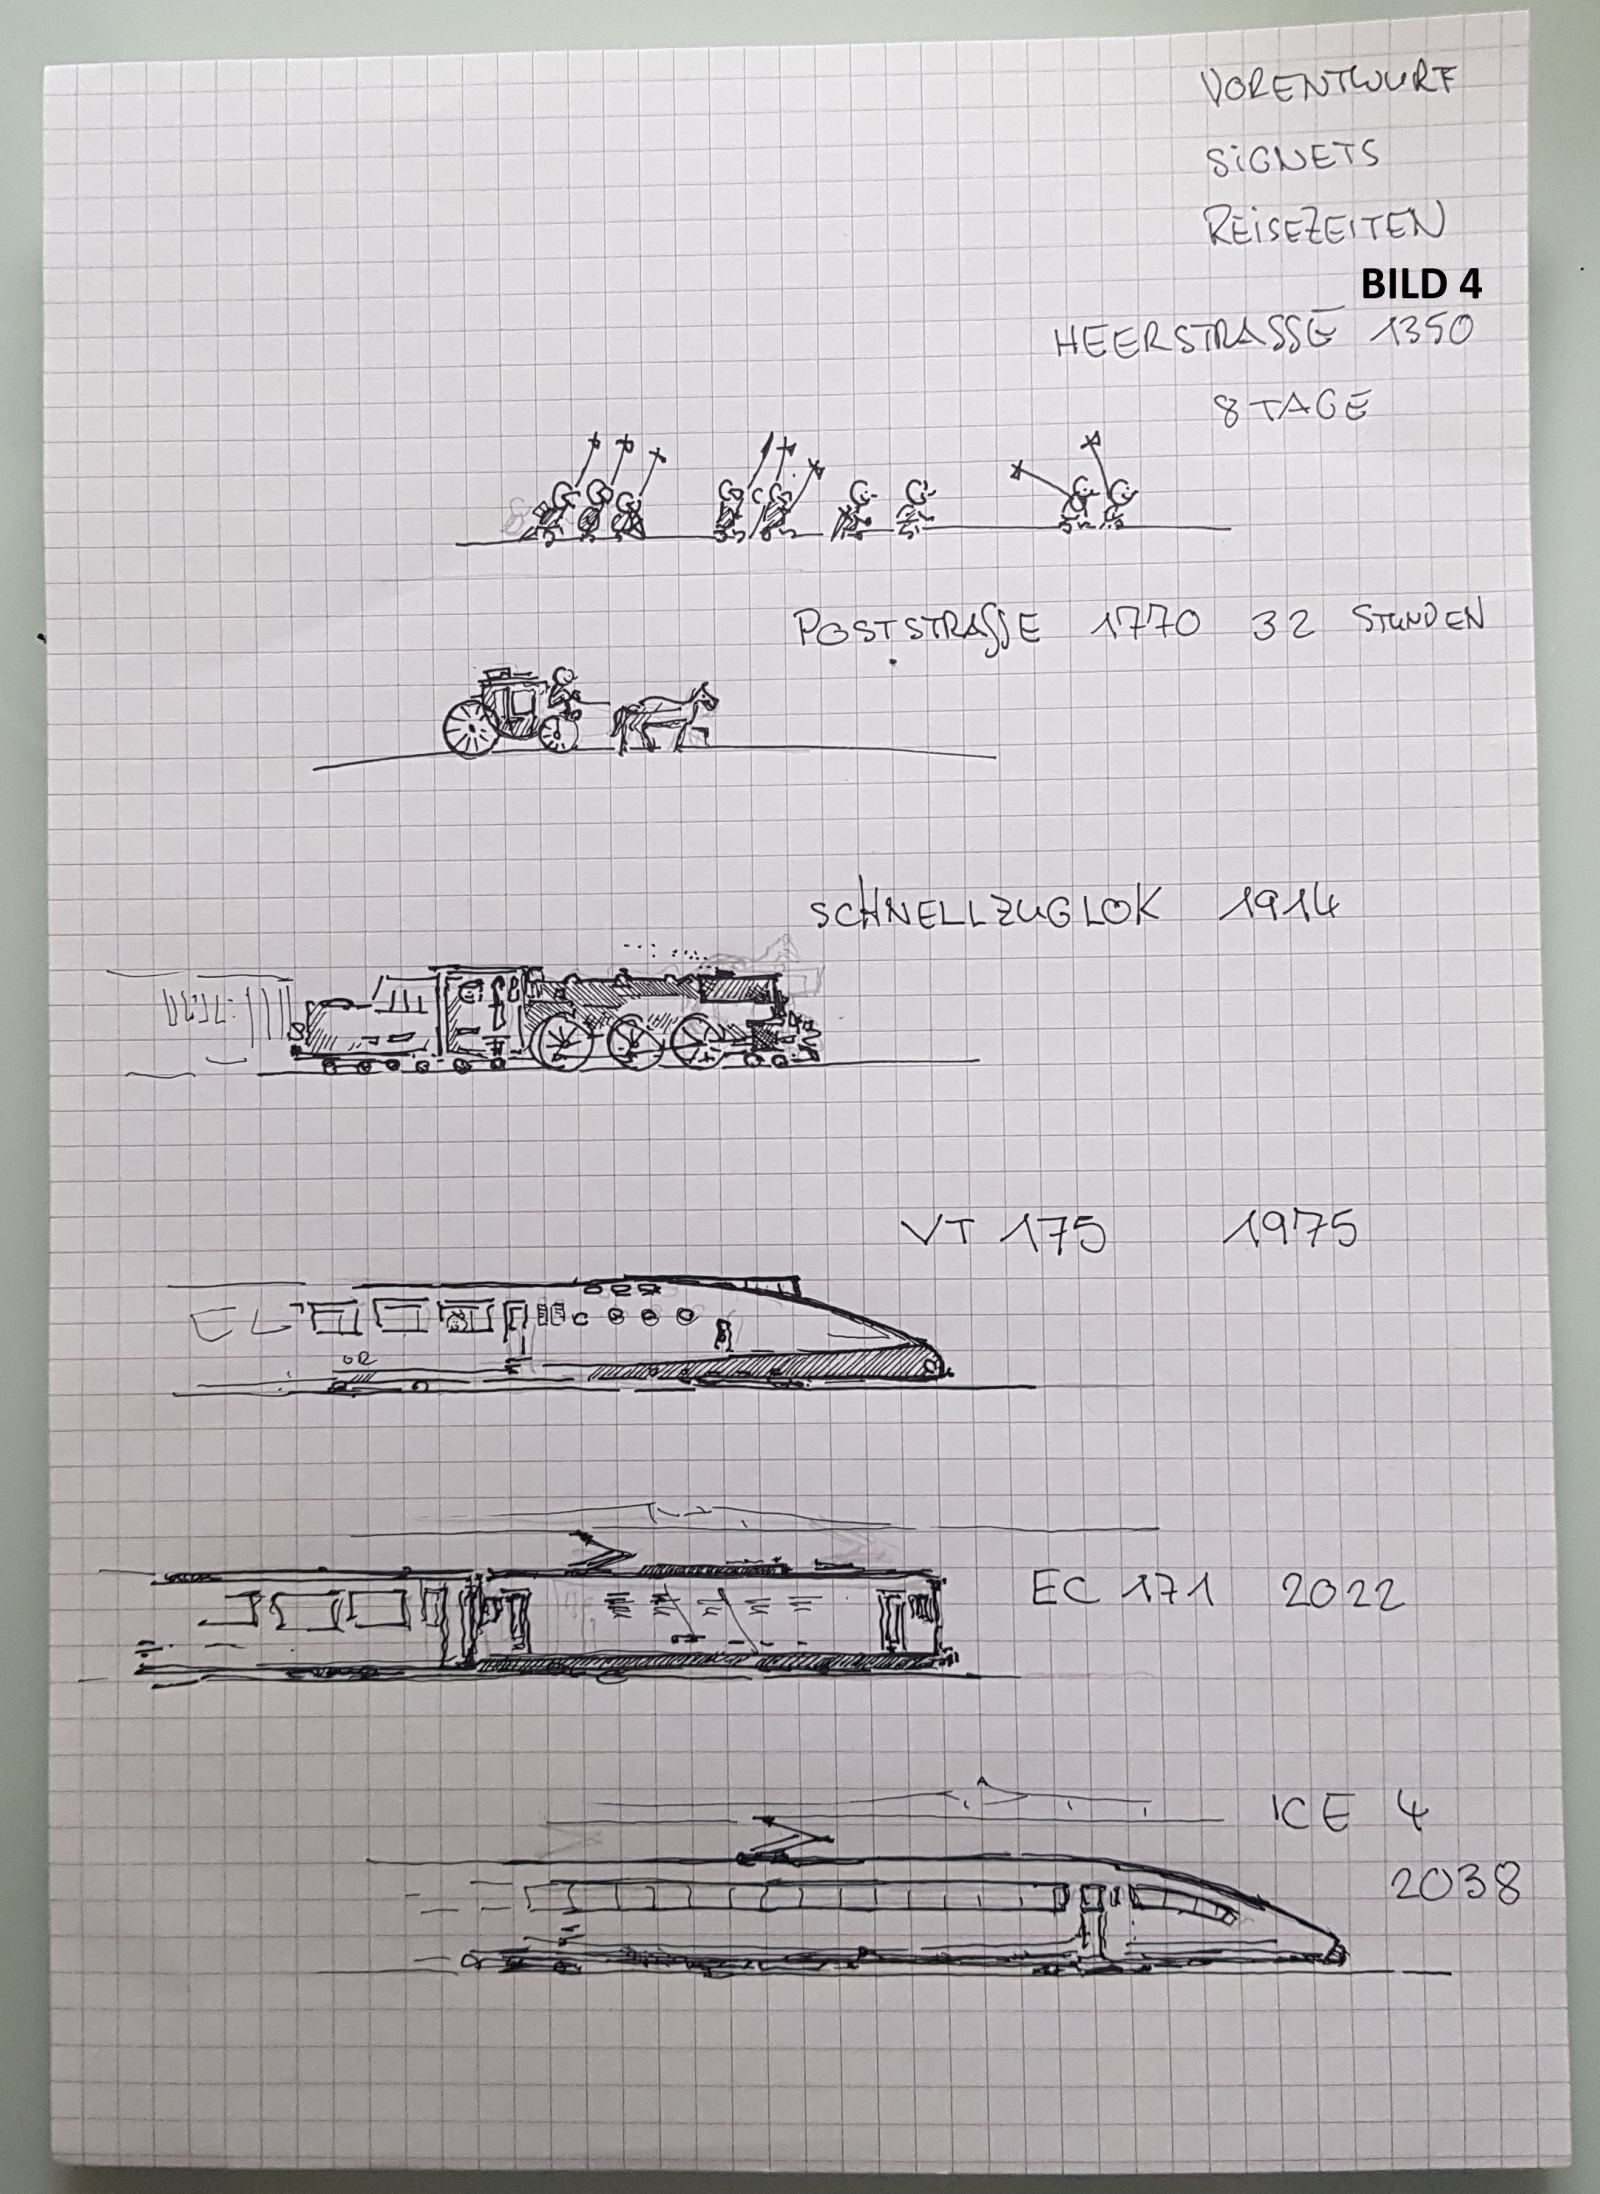 VORENTWURF
SiGNETS
REiSEZEITEN
BILD 4
HEERSTRASSE 1350
8 TAGE
POSTSTRASSE 1770 32 STUNDEN
SCHNELLZUGLOK 1914
VT 175 1975
EC 171 2022
ICE 4
2038